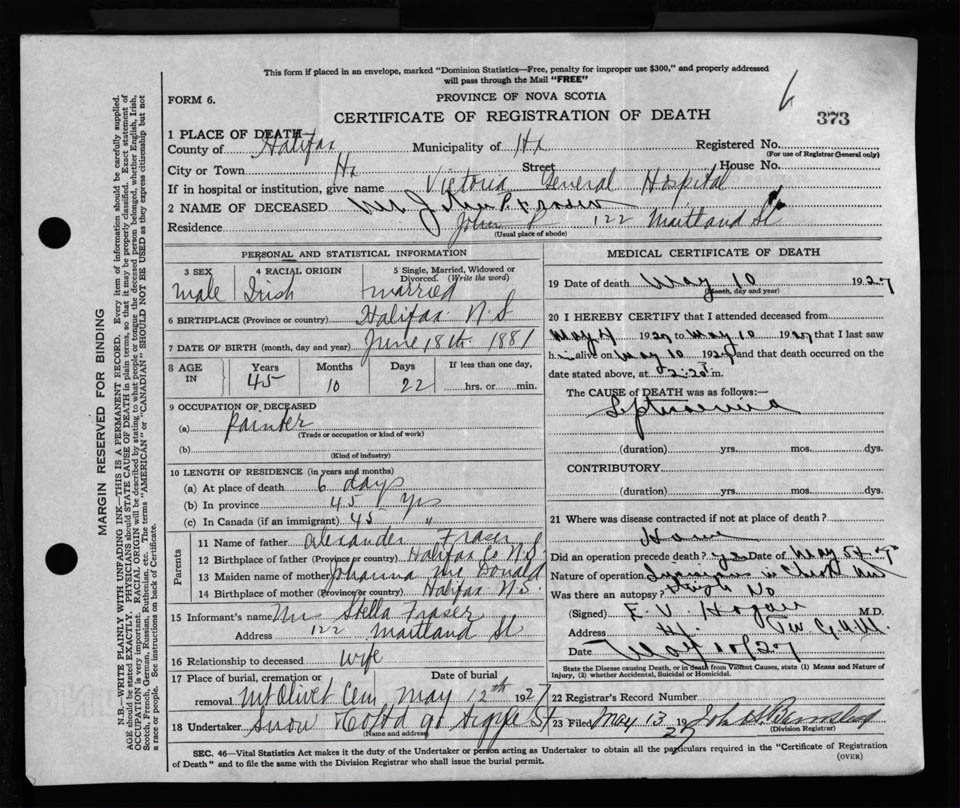 This form if placed in an envelope, marked "Dominion Statistics—Free, penalty for improper use $300," and properly addressed
will pass through the Mail "FREE"
FORM 6.
PROVINCE OF NOVA SCOTIA
6
CERTIFICATE OF REGISTRATION OF DEATH
373
1 PLACE OF DEATH
County of Halifax Municipality of Hx Registered No.
(For use of Registrar General only)
City or Town Hx Street House No.
If in hospital or institution, give name Victoria General Hospital
2 NAME OF DECEASED Mr J P. Fraser
John P
Residence 122 Maitland St
(Usual place of abode)
PERSONAL AND STATISTICAL INFORMATION
3 SEX 4 RACIAL ORIGIN 5 Single, Married, Widowed or
Divorced. (Write the word)
Male Irish married
6 BIRTHPLACE (Province or country) Halifax N.S
7 DATE OF BIRTH (month, day and year) June 18th 1881
8 AGE IN Years Months Days If less than one day,
45 10 22 hrs. or min.
9 OCCUPATION OF DECEASED
(a) Painter
(Trade or occupation or kind of work)
(b)
(Kind of industry)
10 LENGTH OF RESIDENCE (in years and months)
(a) At place of death 6 days
(b) In province 45 yrs
(c) In Canada (if an immigrant) 45 "
Parents
11 Name of father Alexander Fraser
12 Birthplace of father (Province or country) Halifax Co N.S
13 Maiden name of mother Johanna Mc Donald
14 Birthplace of mother (Province or country) Halifax N.S.
15 Informant's name Mrs Stella Fraser
Address 122 Maitland St
16 Relationship to deceased wife
17 Place of burial, cremation or Date of burial
removal Mt Olivet Cem May 12th 1927
18 Undertaker Snow & Co Ltd 90 Argyle St
(Name and address)
MEDICAL CERTIFICATE OF DEATH
19 Date of death May 10 1927
(Month, day and year)
20 I HEREBY CERTIFY that I attended deceased from
May 4 1927 to May 10 1927 that I last saw
h alive on May 10 1927 and that death occurred on the
date stated above, at m.
The CAUSE OF DEATH was as follows:—
Septicaemia
(duration) yrs. mos. dys.
CONTRIBUTORY
(duration) yrs. mos. dys.
21 Where was disease contracted if not at place of death?
Home
Did an operation precede death? yes Date of May 5
Nature of operation
Was there an autopsy? No
(Signed) E. V. Hogan M.D.
Address Hx
Date May 10/27
State the Disease causing Death, or in death from Violent Causes, state (1) Means and Nature of
Injury, (2) whether Accidental, Suicidal or Homicidal.
22 Registrar's Record Number
23 Filed May 13 1927
(Division Registrar)
SEC. 46—Vital Statistics Act makes it the duty of the Undertaker or person acting as Undertaker to obtain all the particulars required in the "Certificate of Registration
of Death" and to file the same with the Division Registrar who shall issue the burial permit.
(OVER)
MARGIN RESERVED FOR BINDING
N.B.—WRITE PLAINLY WITH UNFADING INK—THIS IS A PERMANENT RECORD. Every item of information should be carefully supplied.
AGE should be stated EXACTLY. PHYSICIANS should STATE CAUSE OF DEATH in plain terms, so that it may be properly classified. Exact statement of
OCCUPATION is very important. RACIAL ORIGIN will be described by stating to what people or tongue the deceased person belonged, whether English, Irish,
Scotch, French, German, Russian, Ruthenian, etc. The terms "AMERICAN" or "CANADIAN" SHOULD NOT BE USED as they express citizenship but not
a race or people. See instructions on back of Certificate.